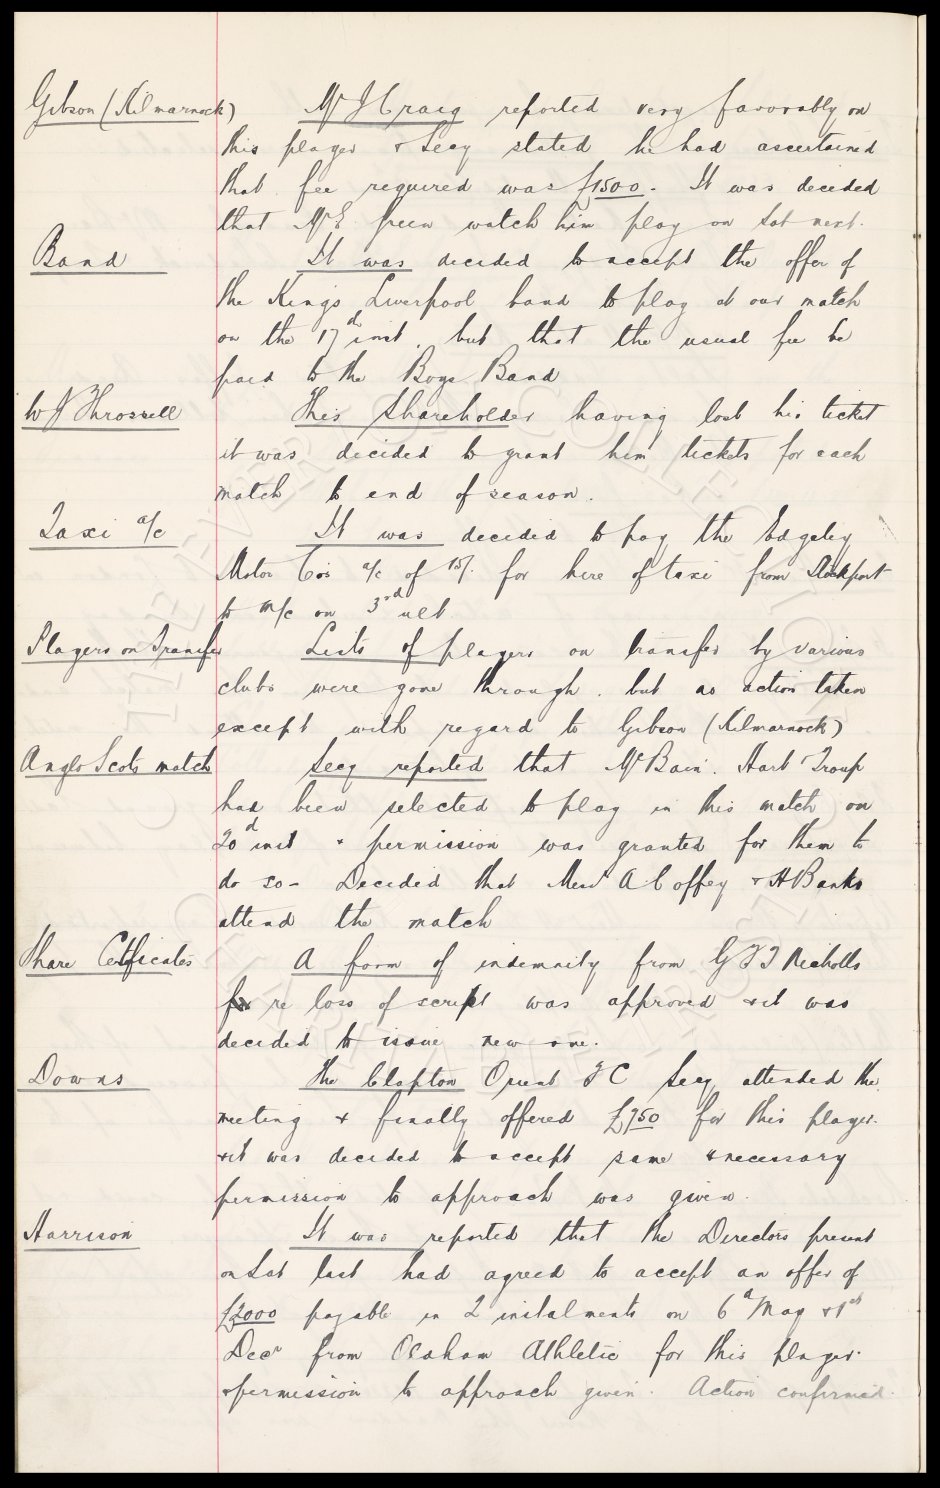 Gibson (Kilmarnock) Mr J Craig reported very favorably on
this player & Secy stated he had ascertained
that fee required was £1500. It was decided
that Mr E Green watch him play on Sat next.
Band It was decided to accept the offer of
the Kings Liverpool band to play at our match
on the 17th inst. but that the usual fee be
paid to the Boys Band
W J Throssell This Shareholder having lost his ticket
it was decided to grant him tickets for each
match to end of season.
Taxi a/c It was decided to pay the Edgeley
Motor Co's a/c of 15/. for hire of taxi from Stockport
to M/c on 3rd ult
Players on Transfer Lists of players on transfer by various
clubs were gone through. but no action taken
except with regard to Gibson (Kilmarnock)
Anglo Scots match Secy reported that McBain. Hart Troup
had been selected to play in this match on
20th inst & permission was granted for them to
do so - Decided that Messrs A Coffey & H Banks
attend the match
Share Certificates A form of indemnity from G F T Nicholls
re loss of script was approved & it was
decided to issue new one.
Downs The Clapton Orient FC Secy attended the
meeting & finally offered £750 for this player.
& it was decided to accept same & necessary
permission to approach was given.
Harrison It was reported that the Directors present
on Sat last had agreed to accept an offer of
£2000 payable in 2 instalments on 6th May & 1st
Decr from Oldham Athletic for this player.
& permission to approach given. Action confirmed.